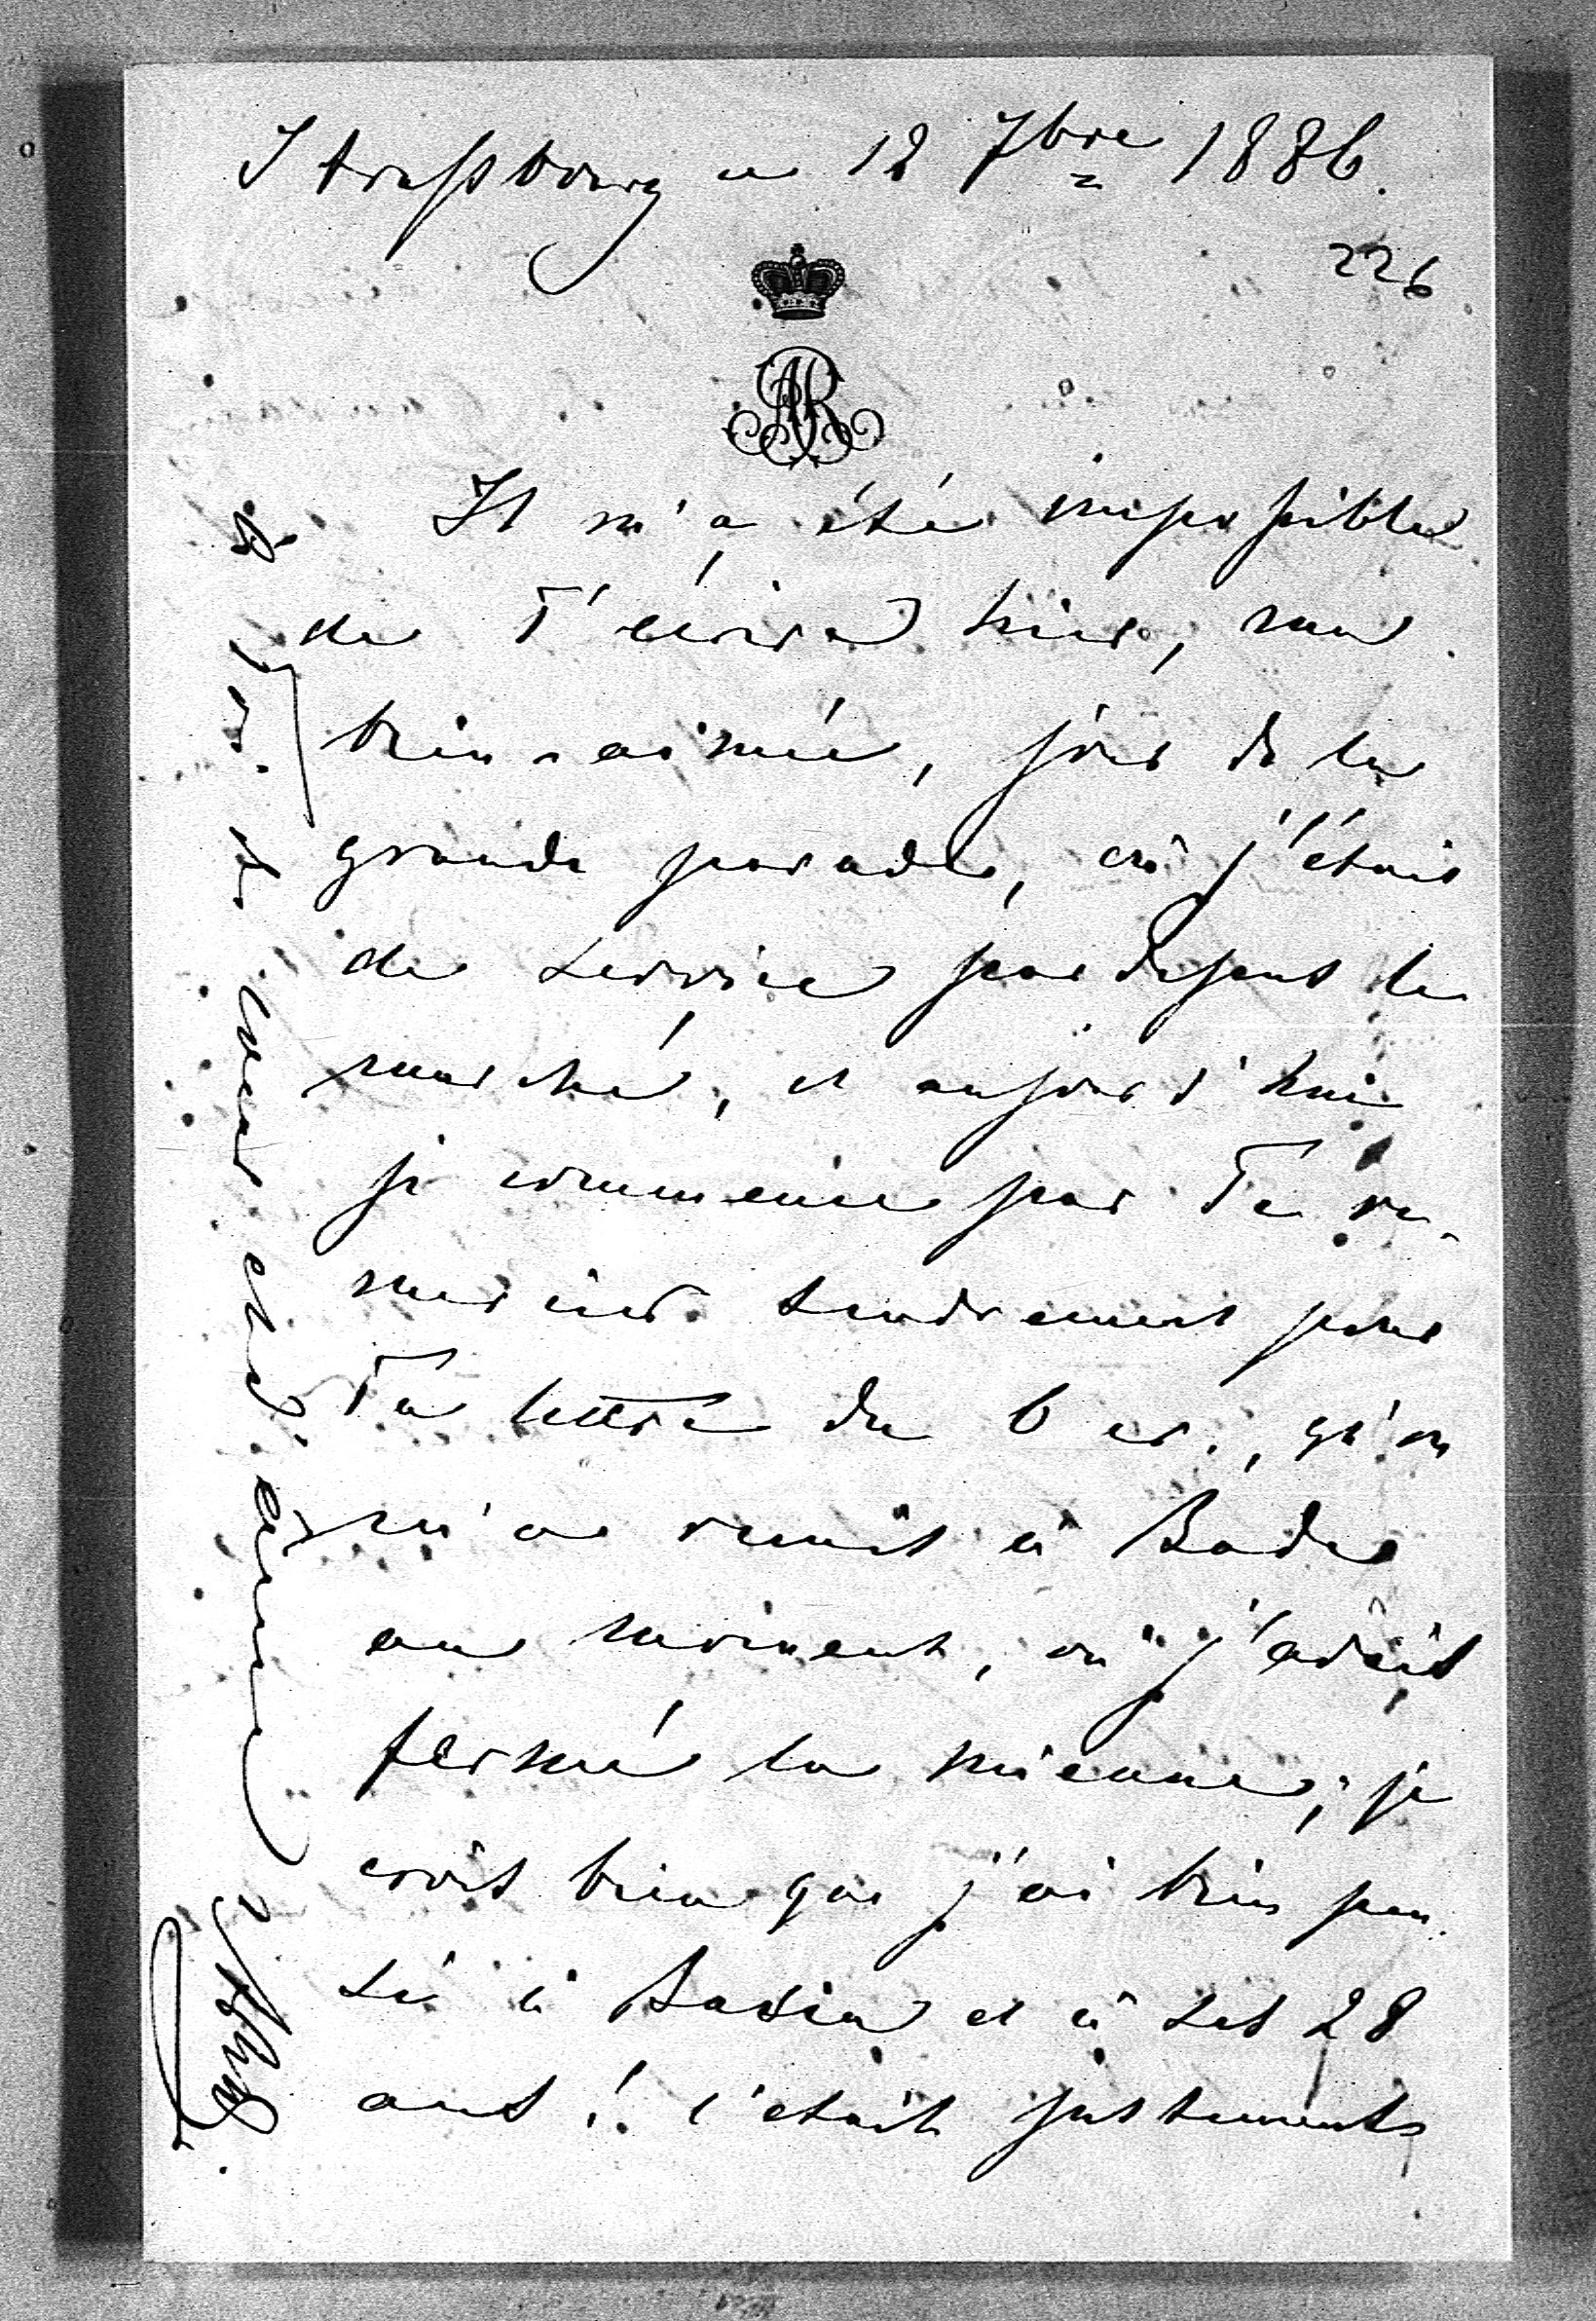 Strassbourg ce 12 7bre 1886.
226
AR
Il m'a été impossible
de T'écrire hier, ma
bien-aimée, jour de la
grande parade, où j'étais
de service par dessus le
marché, et aujourd'hui
je commence par Te re-
mercier tendrement pour
Ta lettre du 6 cr., qu'on
m'a remit à Bade
au moment, où j'avais
fermé la mienne; je
crois bien que j'ai bien pen
sé à Basia et à ses 28
ans! c'était justement